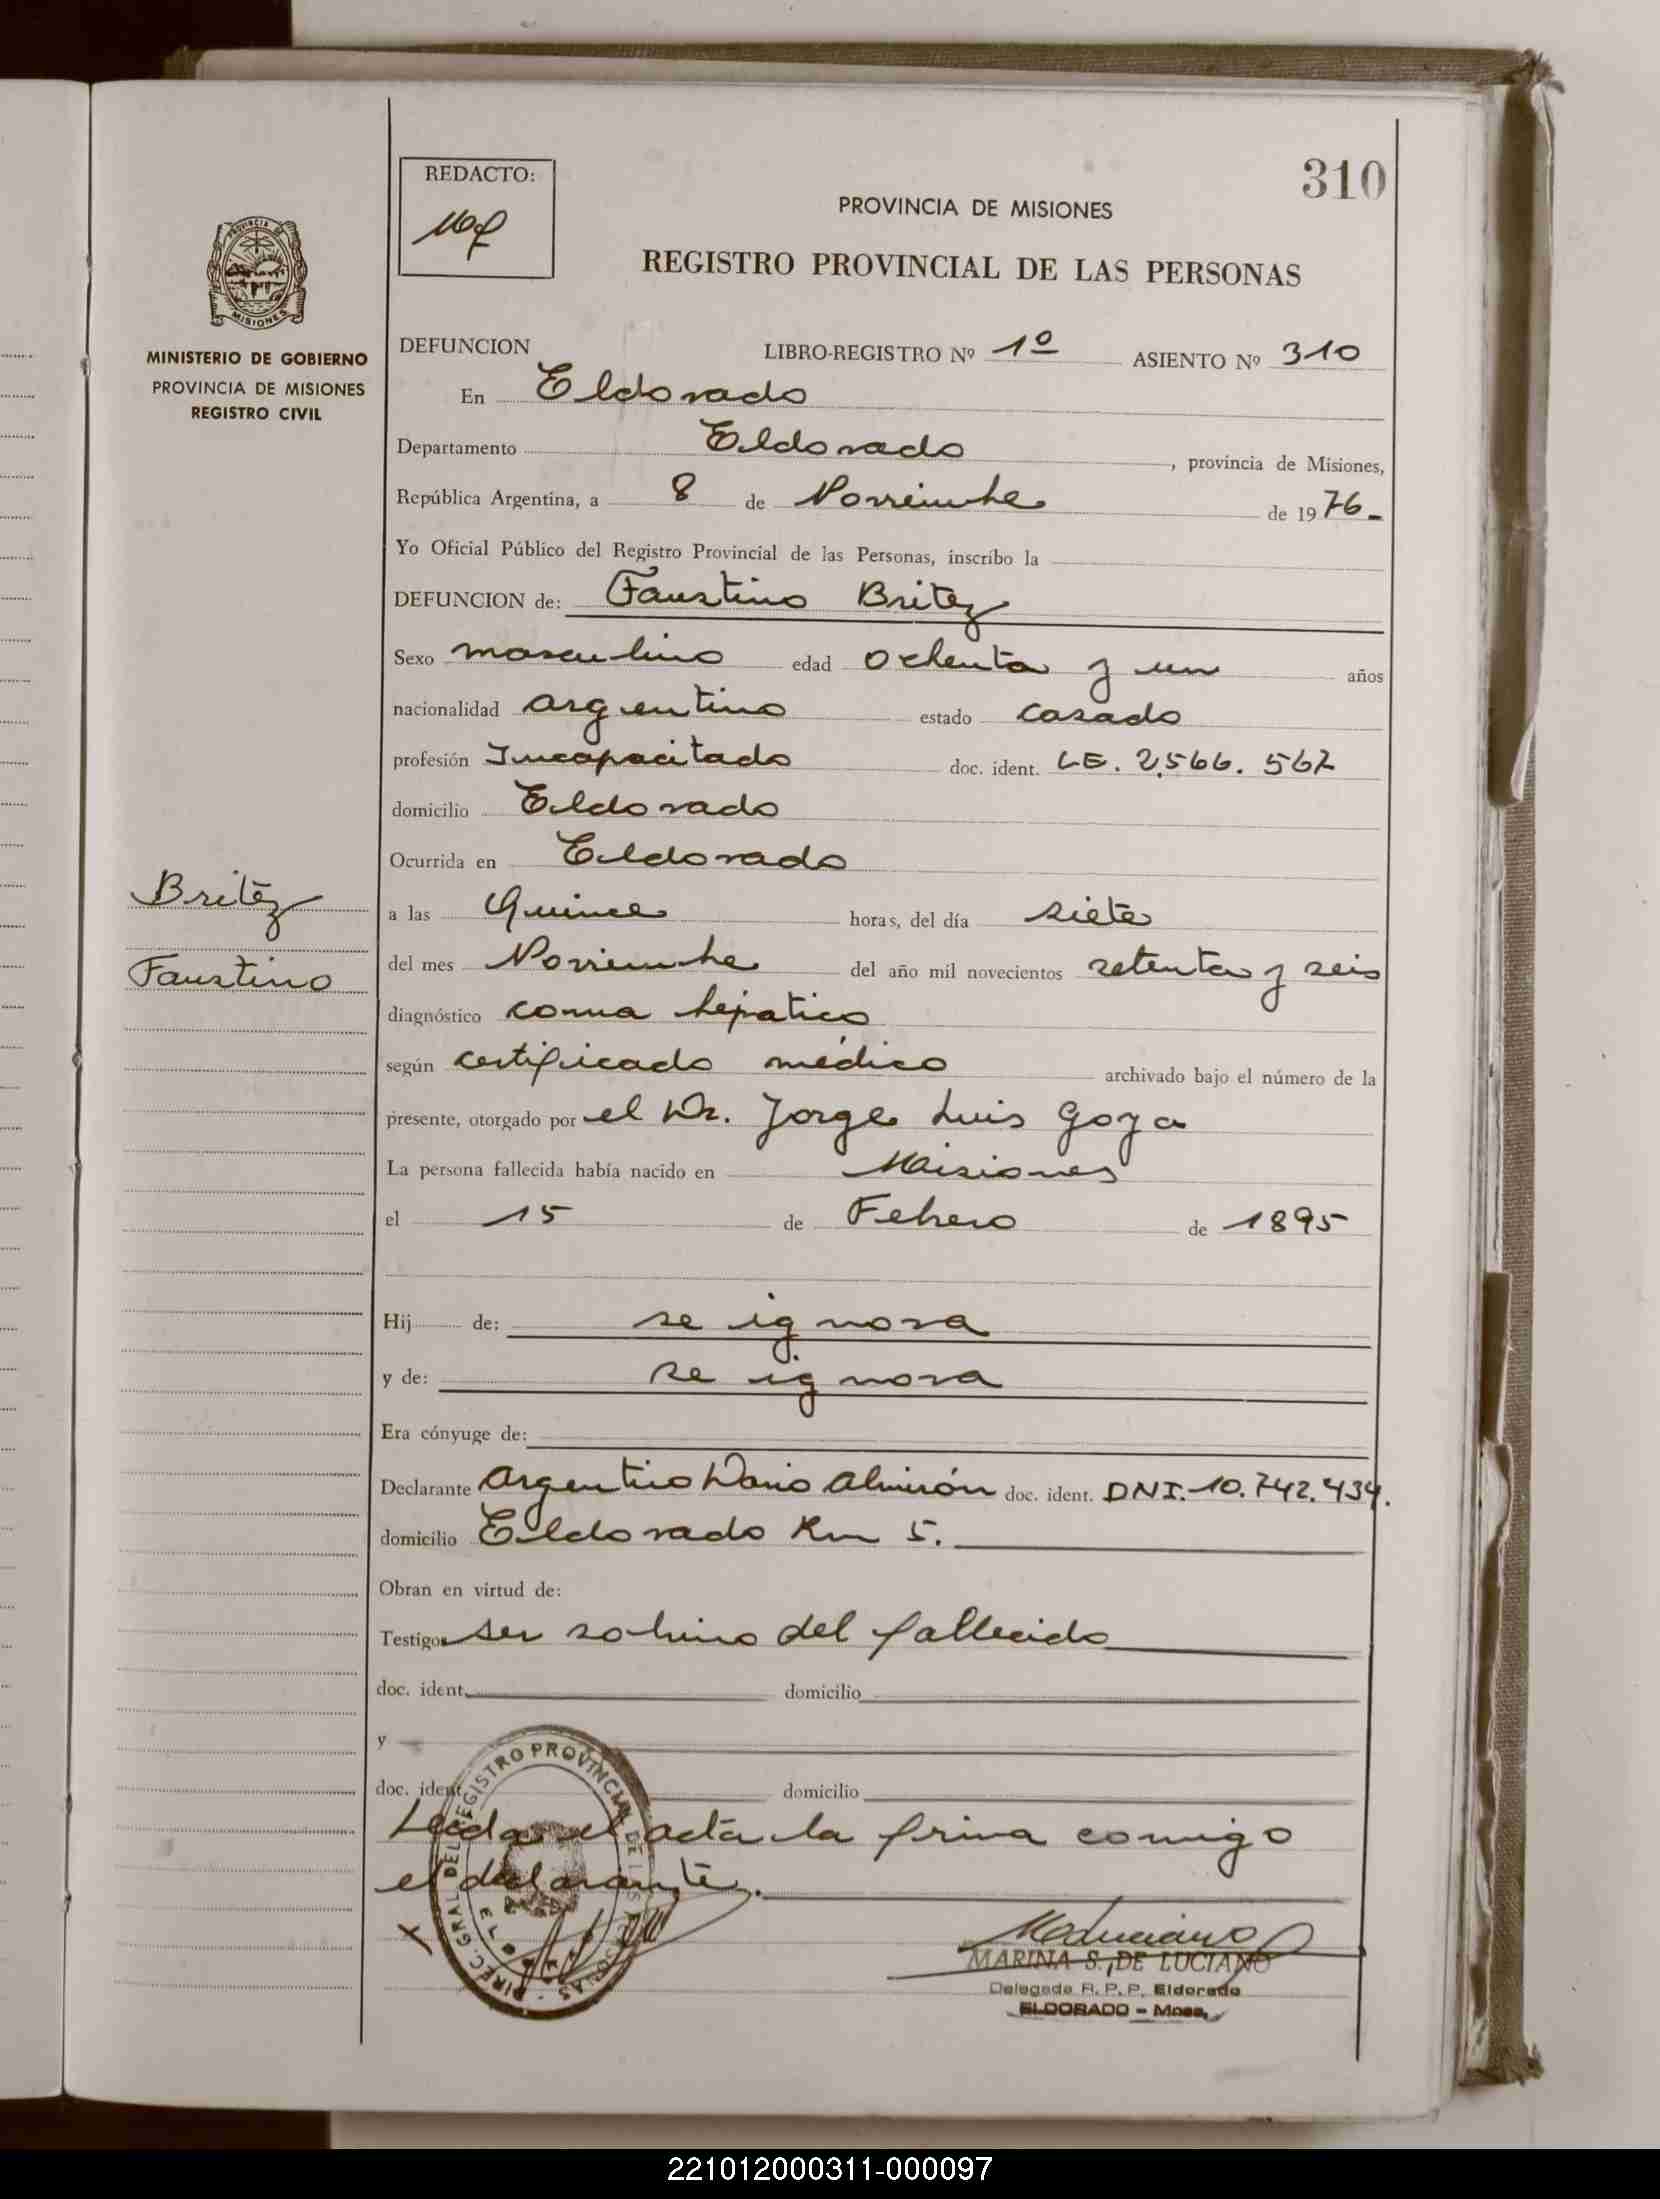 310
REDACTO:
PROVINCIA DE MISIONES
REGISTRO PROVINCIAL DE LAS PERSONAS
PROVINCIA DE
MISIONES
MINISTERIO DE GOBIERNO
PROVINCIA DE MISIONES
REGISTRO CIVIL
DEFUNCION LIBRO-REGISTRO Nº 1º ASIENTO Nº 310
En Eldorado
Departamento Eldorado, provincia de Misiones,
República Argentina, a 8 de Noviembre de 1976-
Yo Oficial Público del Registro Provincial de las Personas, inscribo la
DEFUNCION de: Faustino Britez
Sexo masculino edad ochenta y un años
nacionalidad argentino estado casado
profesión Incapacitado doc. ident. L.E. 2.566.562
domicilio Eldorado
Ocurrida en Eldorado
Britez
Faustino
a las Quince horas, del día siete
del mes Noviembre del año mil novecientos setenta y seis
diagnóstico coma hepatico
según certificado médico archivado bajo el número de la
presente, otorgado por el Dr. Jorge Luis Goya
La persona fallecida había nacido en Misiones
el 15 de Febrero de 1895
Hij de: se ignora
y de: se ignora
Era cónyuge de:
Declarante Argentino Dario Almirón doc. ident. DNI. 10.742.434.
domicilio Eldorado Km 5.
Obran en virtud de:
Testigos ser sobrino del fallecido
doc. ident. domicilio
y
doc. ident. domicilio
Leida el acta la firma comigo
el declarante.
DIREC. GRAL. DEL REGISTRO PROVINCIAL DE LAS PERSONAS
MARINA S. DE LUCIANO
Delegada R. P. P. Eldorado
ELDORADO - Mnes.
221012000311-000097